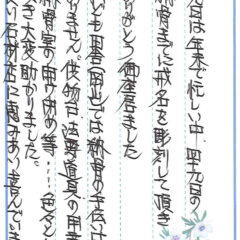 今回は年末で忙しい中、四十九日の
納骨までに戒名を彫刻して頂き
ありがとう御座居ました
ども田舎(岡山)では納骨の手伝い
りません。供物台、法要道具の用意
納骨室の出し納め等…色々と
き大変助かりました。
い石材店に恵まれ、喜んでいま